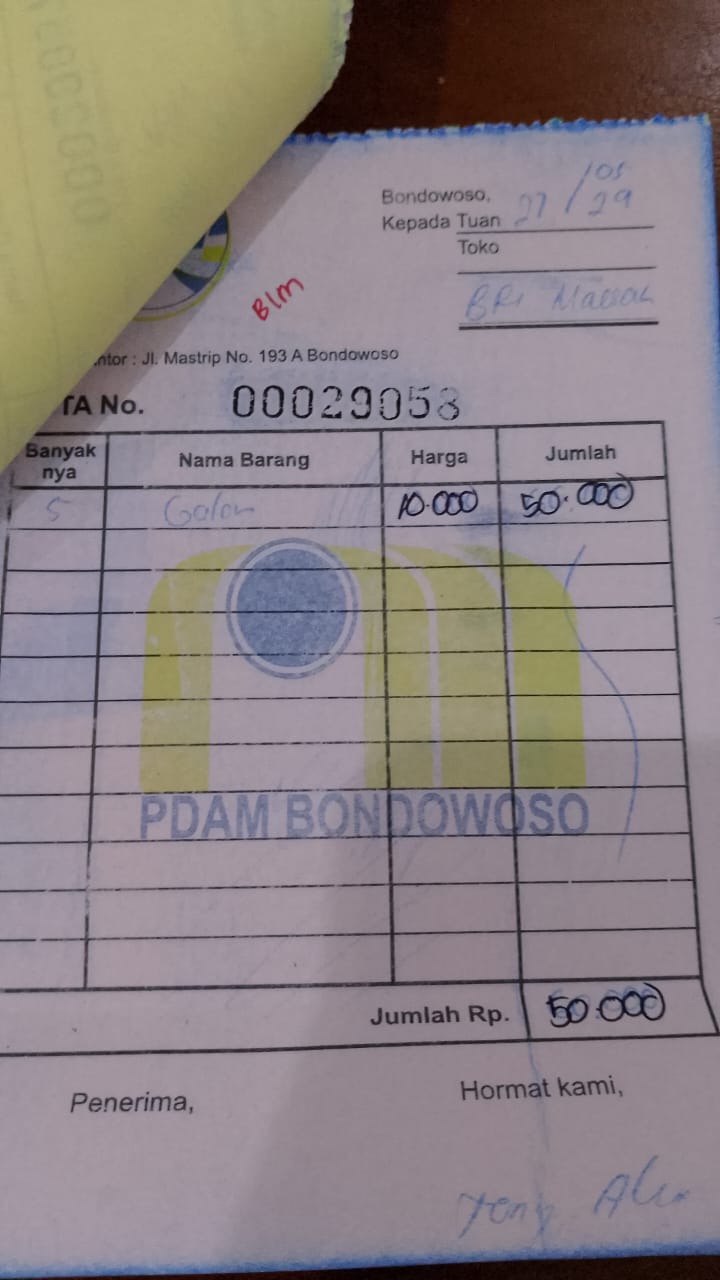 Bondowoso, 27/05
Kepada Tuan 29
Toko
BRI
BLM
ntor : Jl. Mastrip No. 193 A Bondowoso
TA No. 00029058
Banyak nya Nama Barang Harga Jumlah
5 Galon 10.000 50.000
PDAM BONDOWOSO
Jumlah Rp. 50.000
Penerima, Hormat kami,